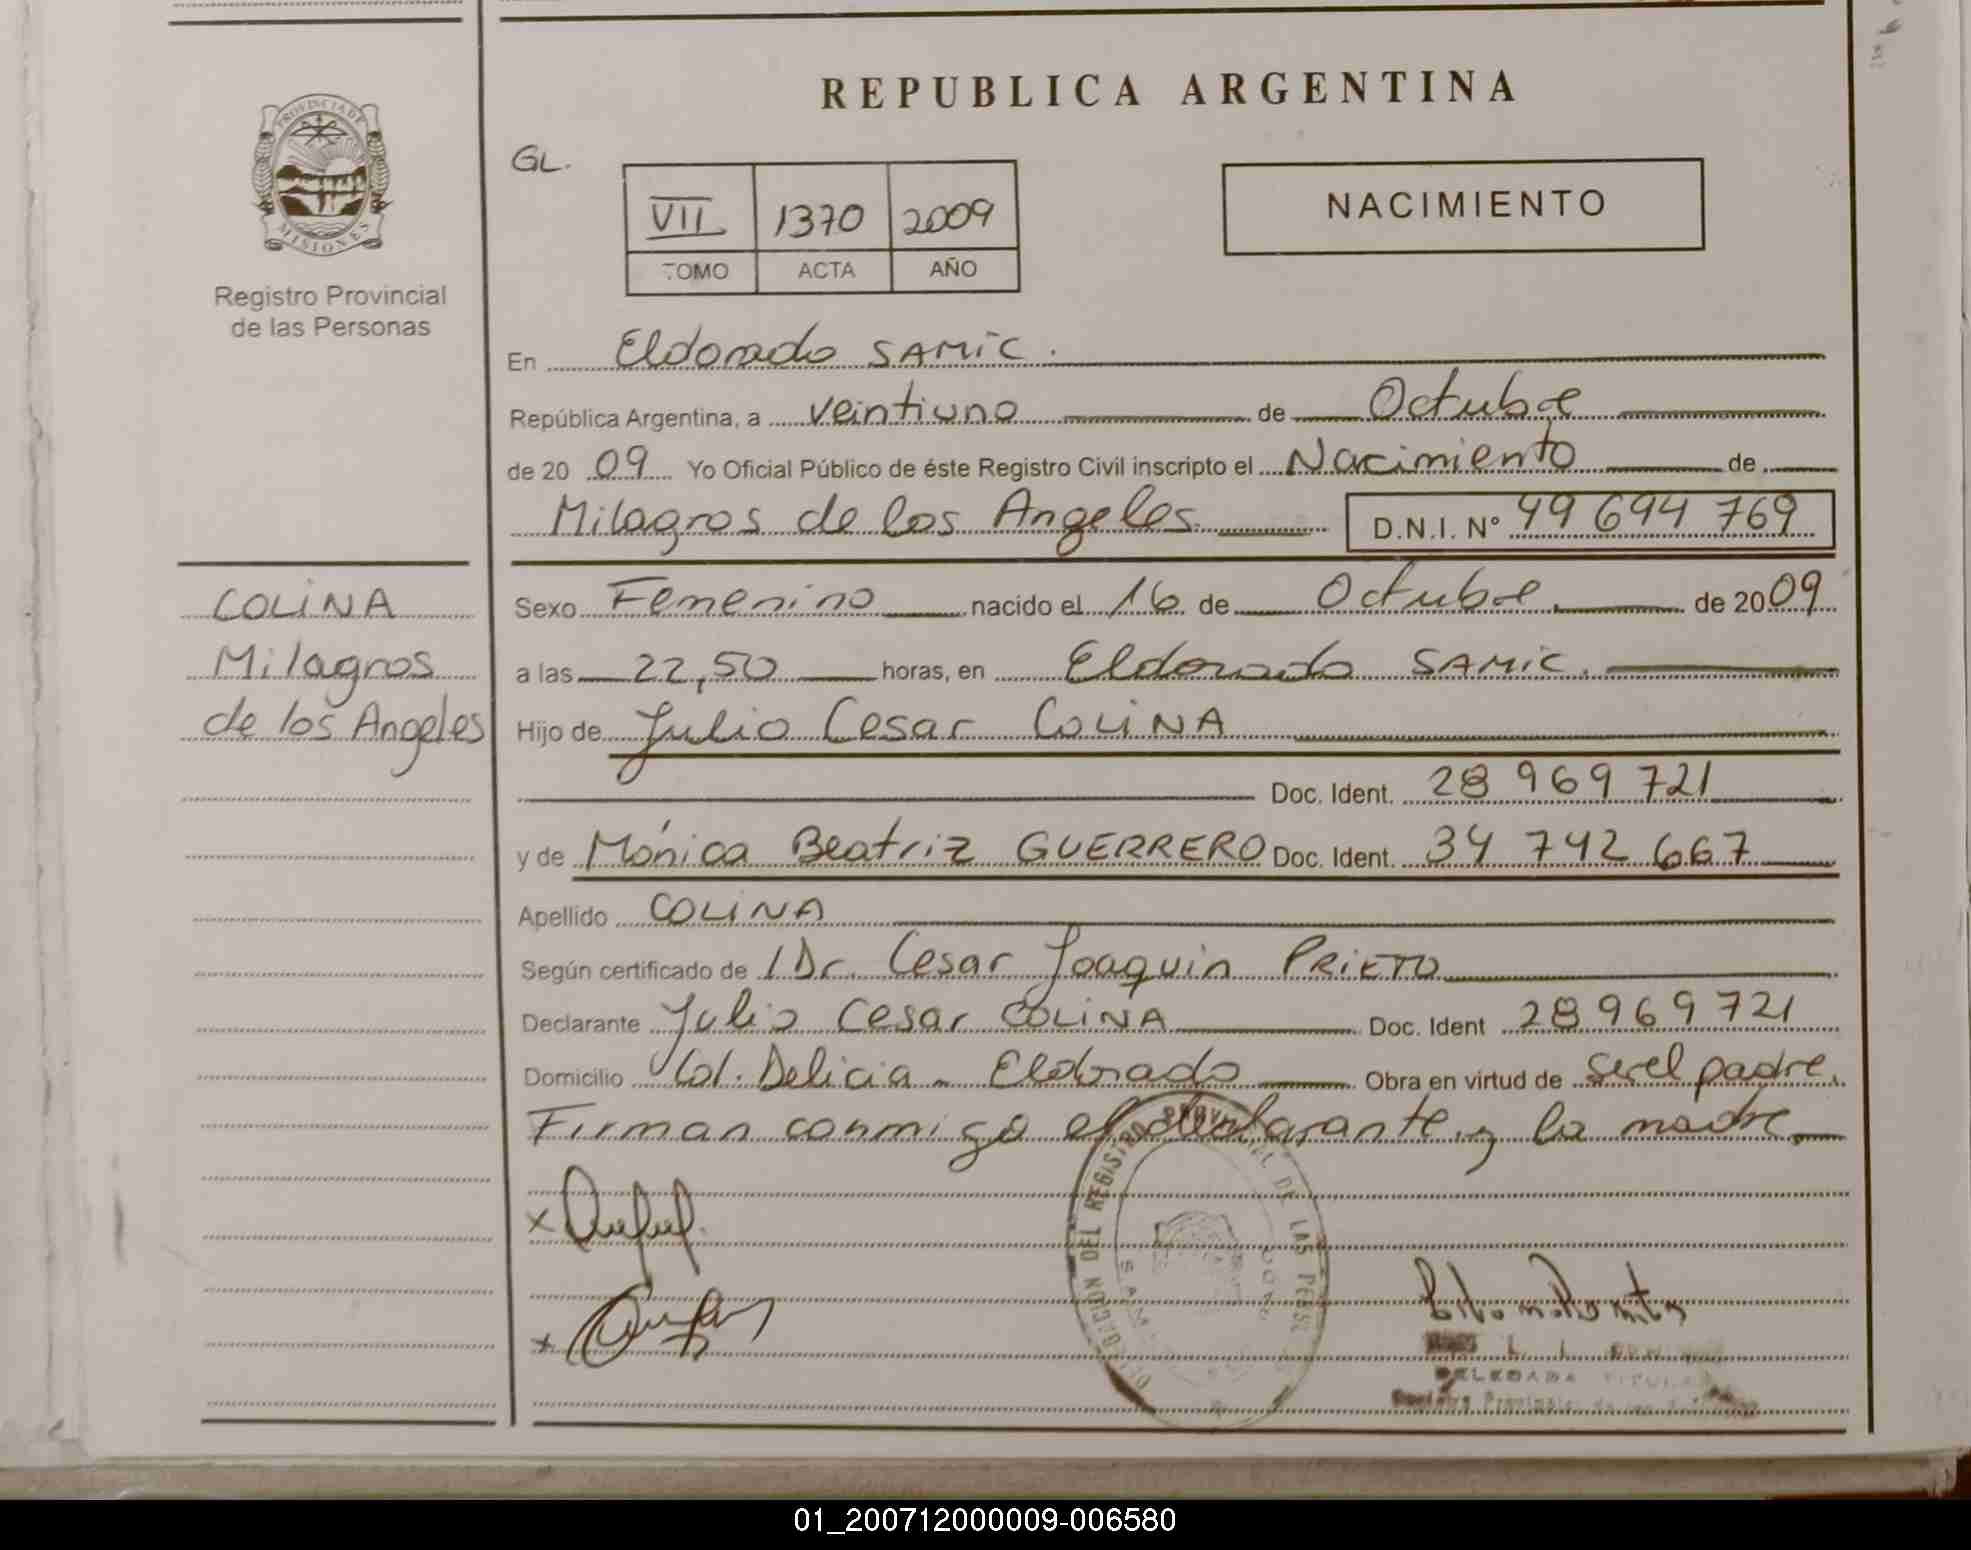 REPUBLICA ARGENTINA
PROVINCIA DE MISIONES
Registro Provincial
de las Personas
GL.
VII 1370 2009
TOMO ACTA AÑO
NACIMIENTO
En Eldorado SAMIC.
República Argentina, a veintiuno de Octubre
de 20 09 Yo Oficial Público de éste Registro Civil inscripto el Nacimiento de
Milagros de los Angeles D.N.I. N° 49 694 769
COLINA
Milagros
de los Angeles
Sexo Femenino nacido el 16 de Octubre de 2009
a las 22,50 horas, en Eldorado SAMIC.
Hijo de Julio Cesar COLINA
Doc. Ident. 28 969 721
y de Mónica Beatriz GUERRERO Doc. Ident. 34 742 667
Apellido COLINA
Según certificado de 1 Dr. Cesar Joaquin PRIETO
Declarante Julio Cesar COLINA Doc. Ident 28 969 721
Domicilio Col. Delicia - Eldorado Obra en virtud de ser el padre.
Firman conmigo el declarante y la madre
x
x
DELEGACION DEL REGISTRO PROVINCIAL DE LAS PERS
DELEGADA TITULAR
01_200712000009-006580